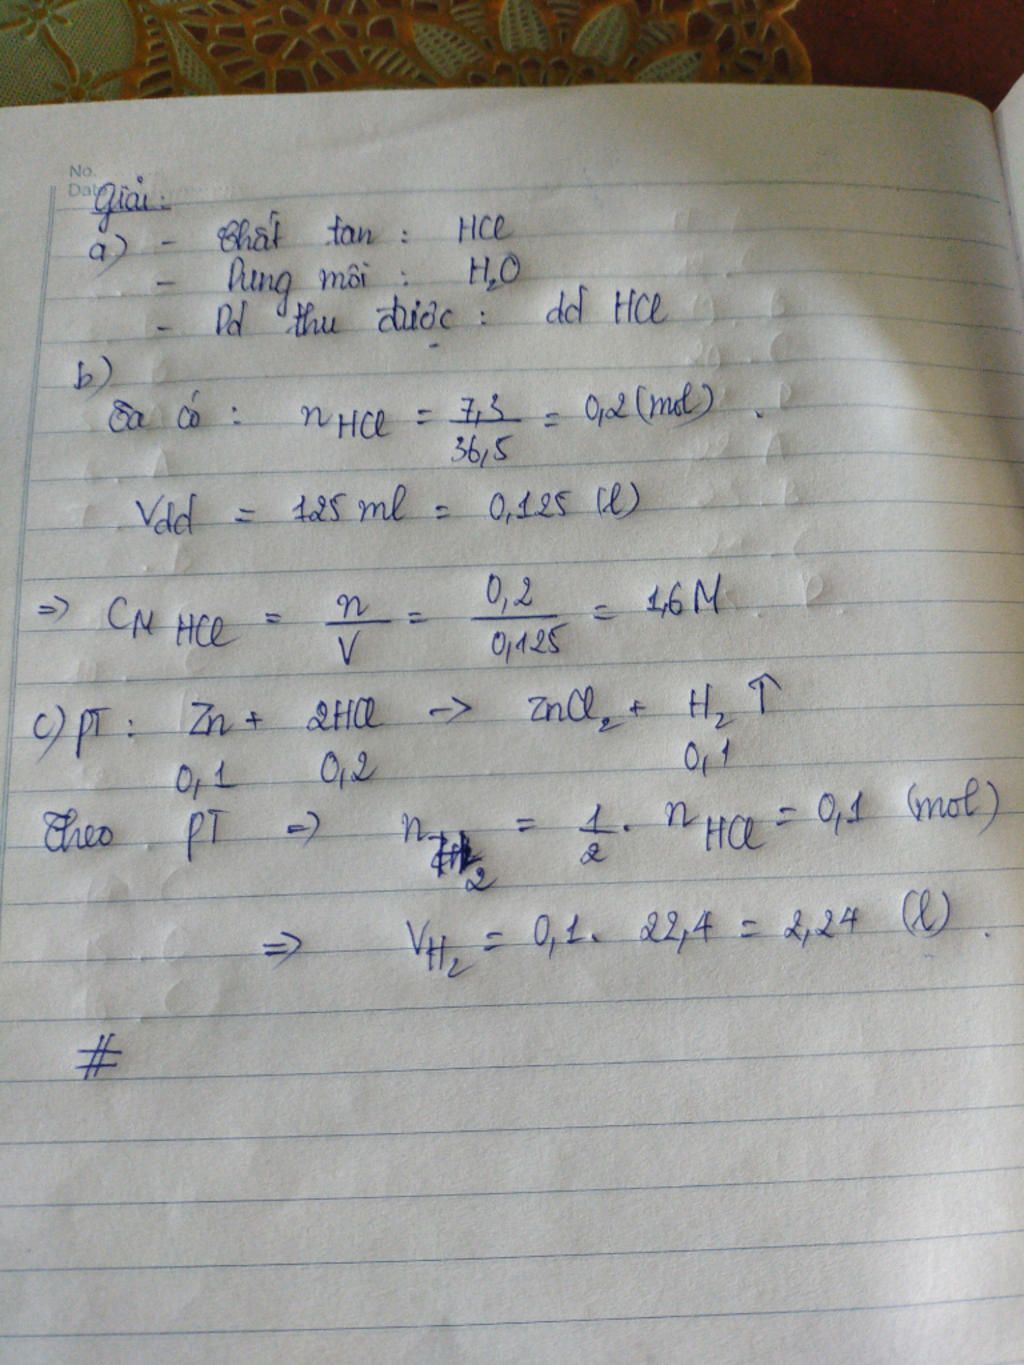 No.
Date
Giải:
a) - Chất tan : HCl
- Dung môi : H₂O
- Dd thu được : dd HCl
b)
Ta có : n HCl = 7,3/36,5 = 0,2 (mol) .
Vdd = 125 ml = 0,125 (l)
=> CM HCl = n/V = 0,2/0,125 = 1,6 M
c) PT : Zn + 2HCl -> ZnCl₂ + H₂ ↑
0,1 0,2 0,1
Theo PT => n H₂ = 1/2 . n HCl = 0,1 (mol)
=> V H₂ = 0,1 . 22,4 = 2,24 (l) .
#